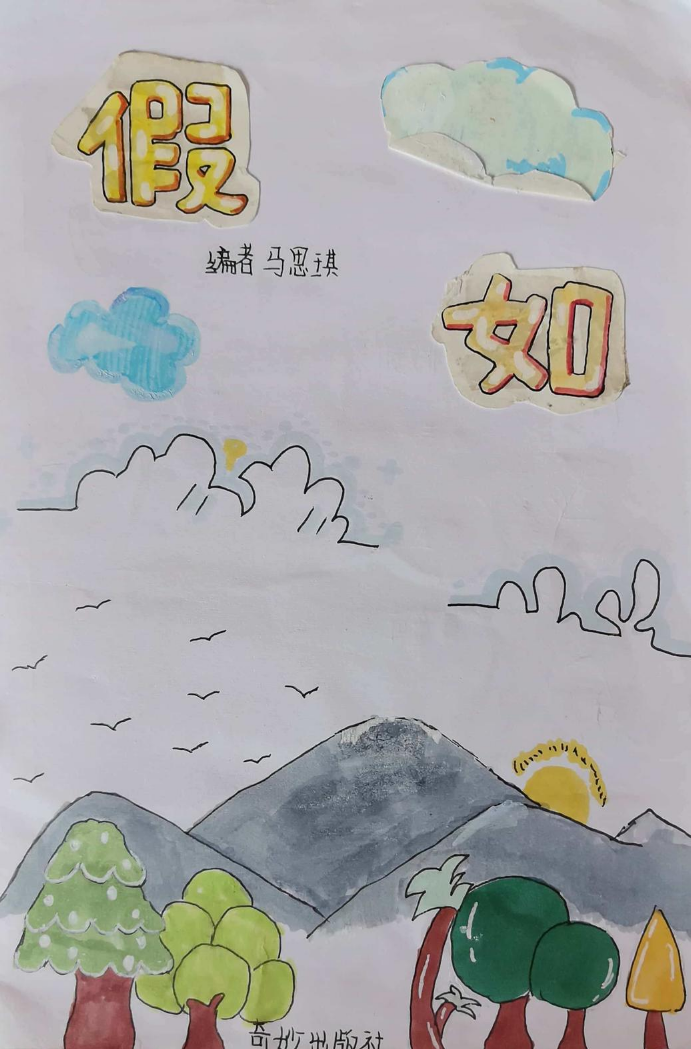 假如
编者 马思琪
奇妙出版社